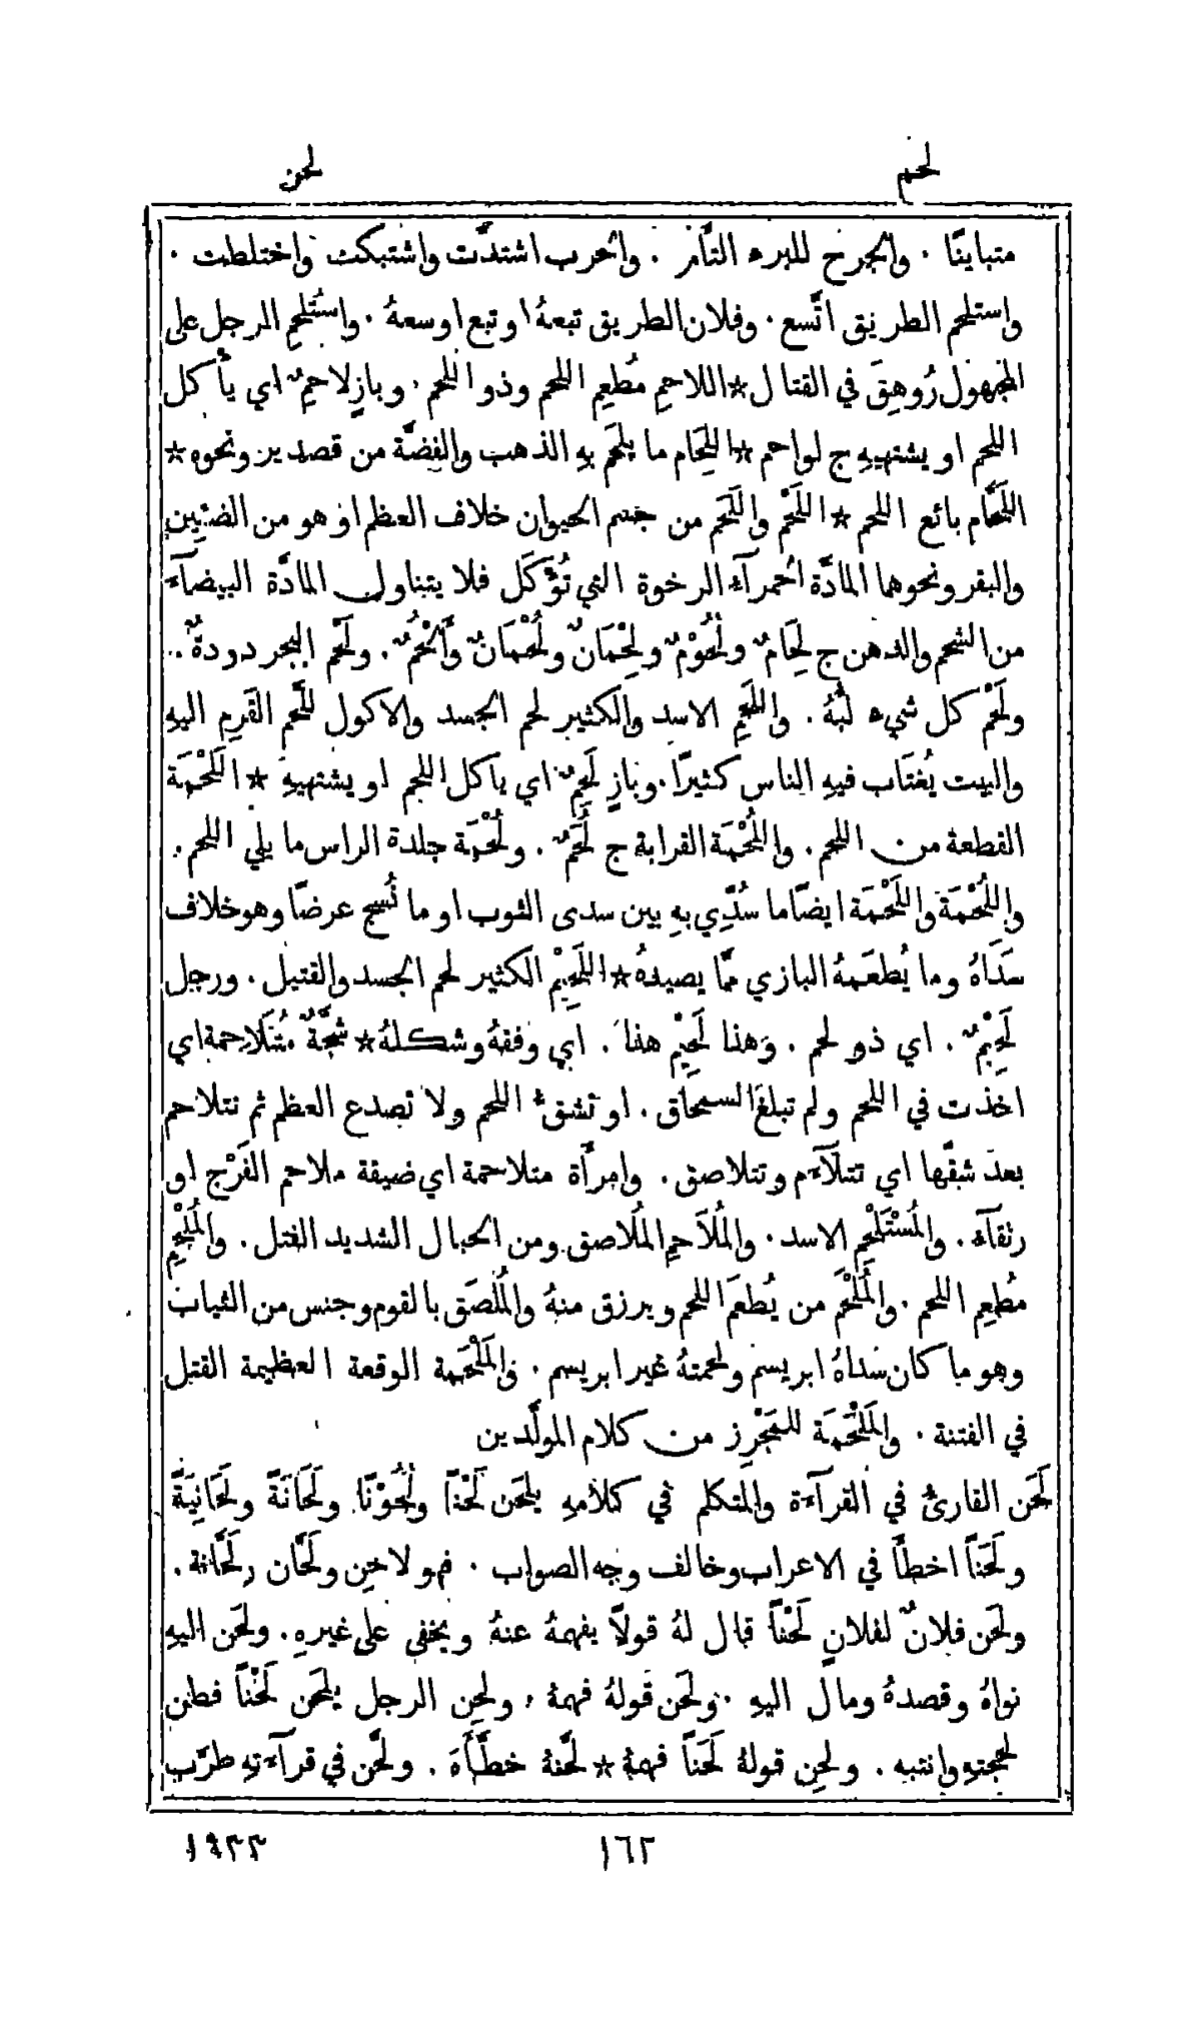 لحم
لحن
متباينًا . والجرح للبرء التَّام . والحرب اشتدَّت واشتبكت واختلطت .
واستلحم الطريق اتَّسع . وفلان الطريق تبعهُ او تبع اوسعهُ . واستُلحِم الرجل على
المجهول رُوهِقَ في القتال * اللاحِم مُطعِم اللحم وذو اللحم . وبازٍ لاحِمٌ اي يأكل
اللحم او يشتهيهِ ج لواحم * اللِحَام ما يلحَم بهِ الذهب والفضَّة من قصدير ونحوه *
اللَّحَّام بائع اللحم * اللَحْم واللَحَم من جسم الحيوان خلاف العظم او هو من الضئين
والبقر ونحوهما المادَّة الحمرآء الرخوة التي تُؤْكَل فلا يتناول المادَّة البيضآء
من الشحم والدهن ج لِحَامٌ ولُحُوْمٌ ولِحْمَانٌ ولُحْمَانٌ وأَلْحُمٌ . ولَحْم البحر دودةٌ .
ولَحْم كل شيء لُبُّهُ . واللَحِم الاسد والكثير لحم الجسد والاكول للَّحم القَرِم اليهِ
والبيت يُغتَاب فيهِ الناس كثيرًا . وبازٍ لَحِمٌ اي ياكل اللحم او يشتهيهِ * اللَحْمَة
القطعة من اللحم . واللُحْمَة القرابة ج لُحَمٌ . ولُحْمَة جلدة الراس ما يلي اللحم .
واللُحْمَة واللَحْمَة ايضًا ما سُدِّي بهِ بين سدى الثوب او ما نُسج عرضًا وهو خلاف
سَدَاهُ وما يُطعَمهُ البازي ممَّا يصيدهُ * اللَحِيْم الكثير لحم الجسد والقتيل . ورجل
لَحِيْمٌ . اي ذو لحم . وهذا لَحِيْم هذا . اي وفقهُ وشكلهُ * شجَّةٌ مُتَلَاحِمة اي
اخذت في اللحم ولم تبلغ السمحاق . او تشقُّ اللحم ولا تصدع العظم ثم تتلاحم
بعد شقّها اي تتلآءم وتتلاصق . وامرأة متلاحمة اي ضيقة ملاحم الفَرْج او
رتقآء . والمُسْتَلْحِم الاسد . والمُلَاحِم المُلَاصق ومن الحبال الشديد الفتل . والمُلْحِم
مُطعِم اللحم . والمُلْحَم من يُطعَم اللحم ويرزق منهُ والمُلْصَق بالقوم وجنس من الثياب
وهو ما كان سَداهُ ابريسم ولحمتهُ غير ابريسم . والمَلْحَمة الوقعة العظيمة القتل
في الفتنة . والمَلْحَمَة للمَجْزر من كلام المولَّدين
لَحَن القارئُ في القرآءة والمتكلم في كلامهِ يلحَن لَحْنًا ولُحُوْنًا ولَحَانَةً ولَحَانِيَةً
ولَحَنًا اخطأَ في الاعراب وخالف وجه الصواب . فهو لاحِن ولَحَّان ولَحَّانة .
ولَحَن فلانٌ لفلانٍ لَحْنًا قال لهُ قولًا يفهمهُ عنهُ ويخفى على غيرهِ . ولحَن اليهِ
نواهُ وقصدهُ ومال اليهِ . ولَحَن قولهُ فهمهُ . ولحِن الرجل يلحَن لَحَنًا فطن
لحجتهِ وانتبه . ولحِن قولهُ لَحَنًا فهمهُ * لَحَّنهُ خطَّأَهَ . ولحَّن في قرآءتهِ طرَّب
١٦٢
١٩٣٣